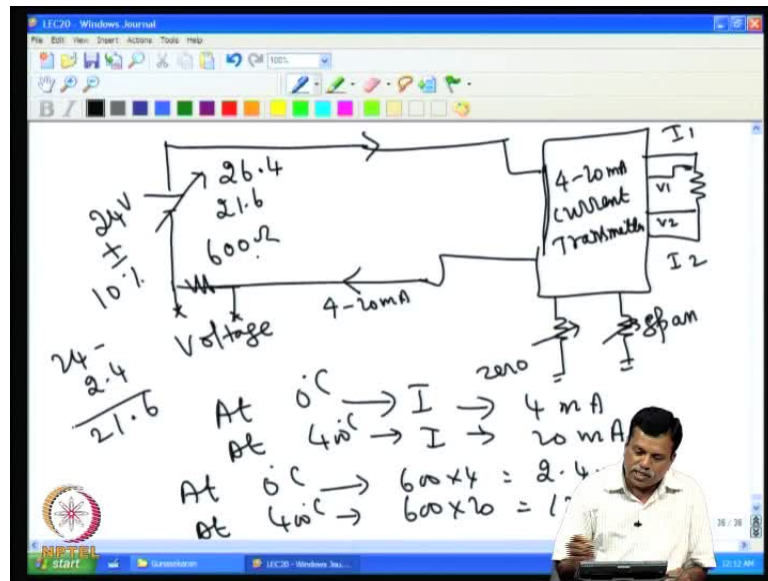 LEC20 - Windows Journal
File Edit View Insert Actions Tools Help
100%
B I
I1
4-20mA
Current
Transmitter
V1
V2
I2
24V
±
10%
26.4
21.6
600Ω
4-20mA
Voltage
zero
span
24 -
2.4
21.6
At 0°C → I → 4 mA
At 400°C → I → 20 mA
At 0°C → 600×4 = 2.4
At 400°C → 600×20 = 12
36 / 36
NPTEL
start
Gunasekaran
LEC20 - Windows Jou...
12:12 AM